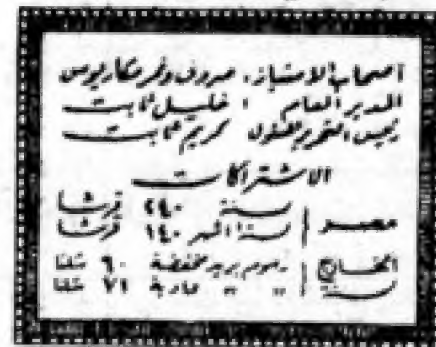 أصحاب الامتياز: صروف ونمر ومكاريوس
المدير العام : خليل ثابت
رئيس التحرير المسئول كريم ثابت
الاشتراكات
مصر سنة ٢٤٠ قرشا
لستة اشهر ١٤٠ قرشا
الخارج رسوم بريد مخفضة ٦٠ شلنا
لسنة " " عادية ٧١ شلنا